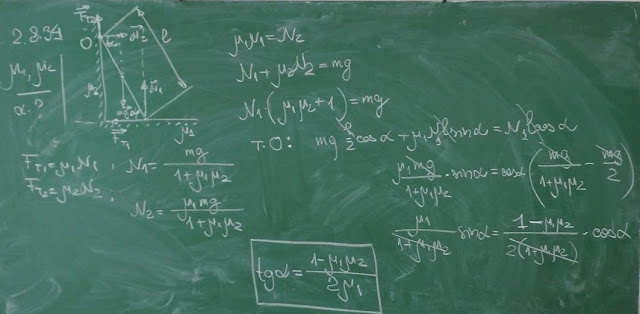 2.8.34
μ₁, μ₂
α - ?
F_T2
O
l
N₂
μ₂
N₁
mg
F_T1
μ₁
F_T1 = μ₁N₁,
F_T2 = μ₂N₂,
N₁ = mg / (1+μ₁μ₂)
N₂ = μ₁mg / (1+μ₁μ₂)
μ₁N₁ = N₂
N₁ + μ₂N₂ = mg
N₁(μ₁μ₂ + 1) = mg
т. O: mg l/2 cosα + μ₁N₁l sinα = N₁l cosα
μ₁mg / (1+μ₁μ₂) · sinα = cosα (mg / (1+μ₁μ₂) - mg / 2)
μ₁ / (1+μ₁μ₂) sinα = (1-μ₁μ₂) / (2(1+μ₁μ₂)) · cosα
tgα = (1-μ₁μ₂) / 2μ₁